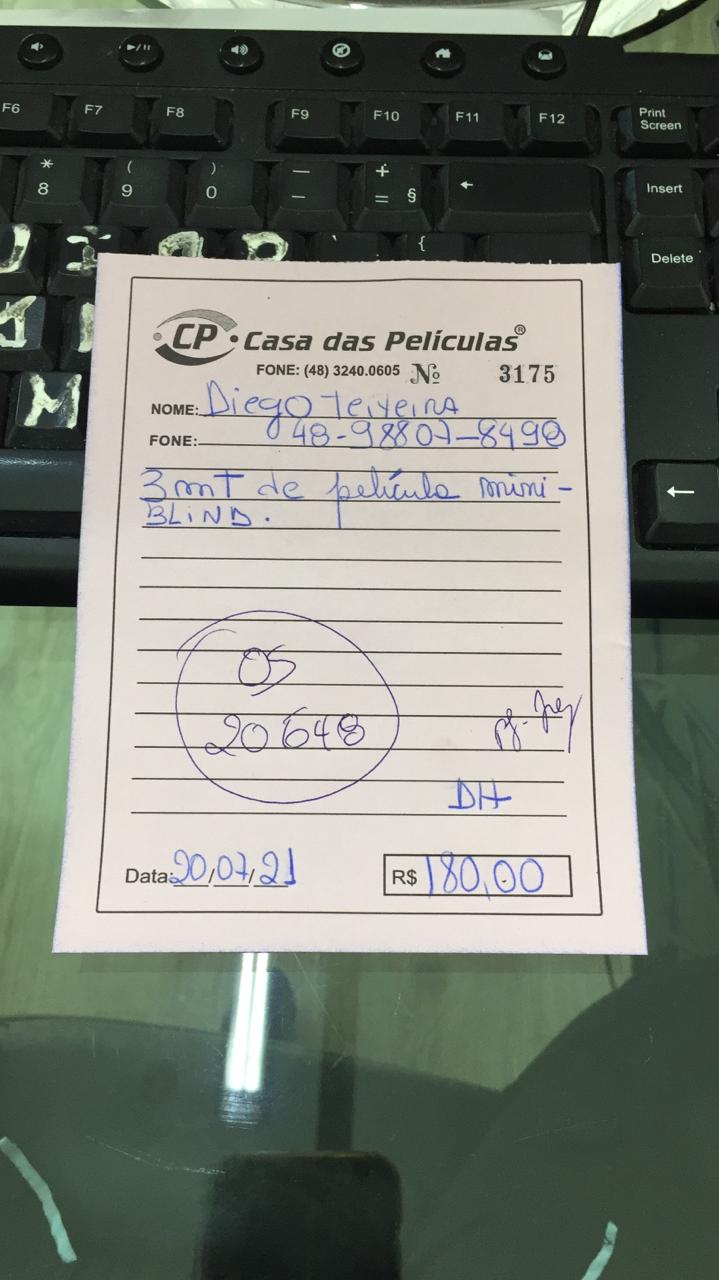 F6 F7 F8 F9 F10 F11 F12 Print Screen
* 8 ( 9 ) 0 — – + = § ← Insert
U I O P ` { Delete
M
←
CP Casa das Películas®
FONE: (48) 3240.0605 Nº 3175
NOME: Diego Teixeira
FONE: 48-98807-8490
3mT de película mini-
BLIND.
OS
20648
DH
Data: 20/07/21 R$ 180,00